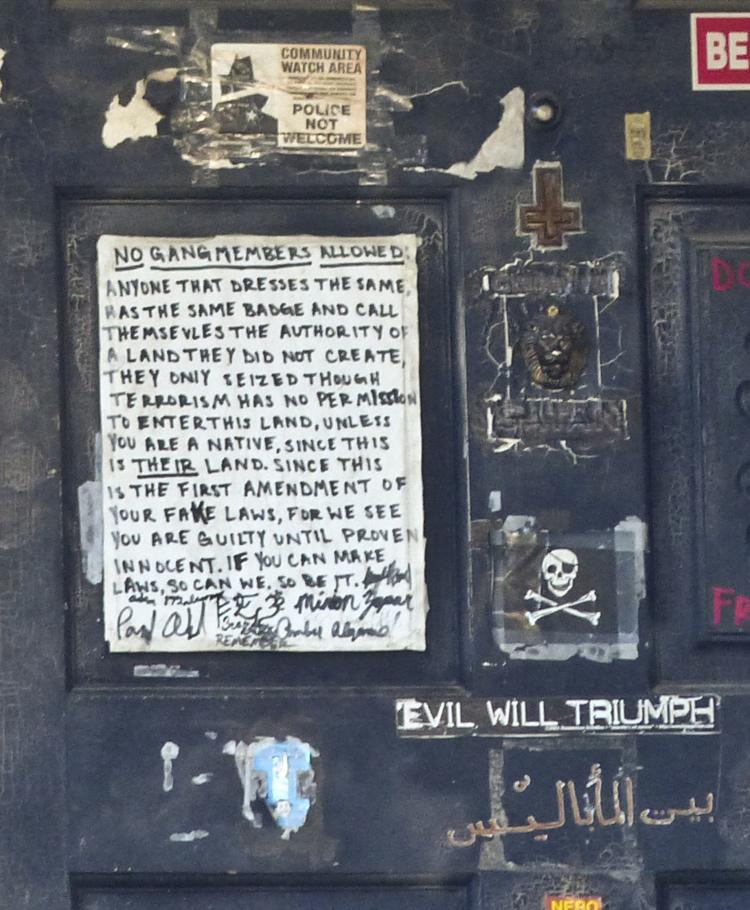 COMMUNITY
WATCH AREA
POLICE
NOT
WELCOME
BE
NO GANG MEMBERS ALLOWED:
ANYONE THAT DRESSES THE SAME,
HAS THE SAME BADGE AND CALL
THEMSEVLES THE AUTHORITY OF
A LAND THEY DID NOT CREATE,
THEY ONLY SEIZED THOUGH
TERRORISM HAS NO PERMISSION
TO ENTER THIS LAND, UNLESS
YOU ARE A NATIVE, SINCE THIS
IS THEIR LAND. SINCE THIS
IS THE FIRST AMENDMENT OF
YOUR FAKE LAWS, FOR WE SEE
YOU ARE GUILTY UNTIL PROVEN
INNOCENT. IF YOU CAN MAKE
LAWS, SO CAN WE. SO BE IT.
REMEMBER
DO
FR
EVIL WILL TRIUMPH
بيت
NERO